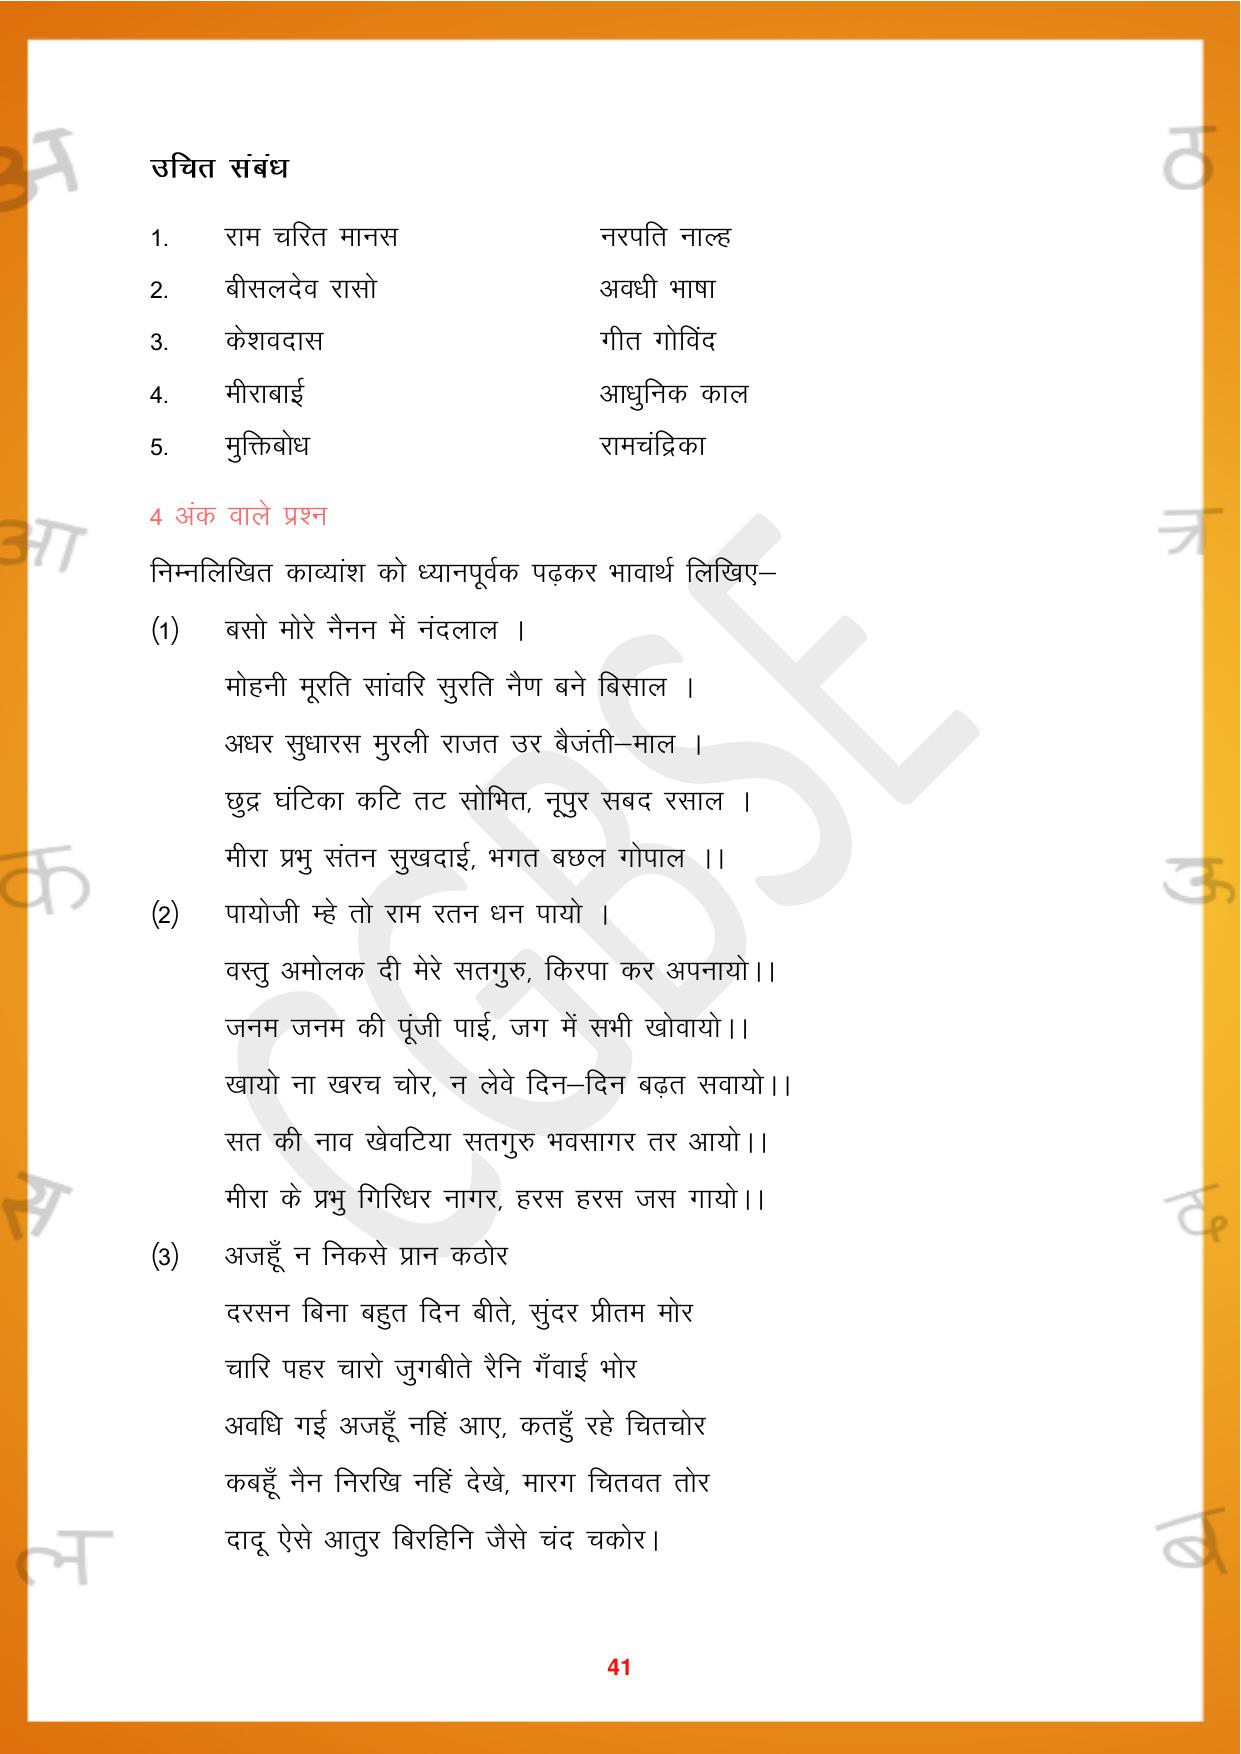 उचित संबंध
1. राम चरित मानस नरपति नाल्ह
2. बीसलदेव रासो अवधी भाषा
3. केशवदास गीत गोविंद
4. मीराबाई आधुनिक काल
5. मुक्तिबोध रामचंद्रिका
4 अंक वाले प्रश्न
निम्नलिखित काव्यांश को ध्यानपूर्वक पढ़कर भावार्थ लिखिए–
(1) बसो मोरे नैनन में नंदलाल ।
मोहनी मूरति सांवरि सुरति नैण बने बिसाल ।
अधर सुधारस मुरली राजत उर बैजंती–माल ।
छुद्र घंटिका कटि तट सोभित, नूपुर सबद रसाल ।
मीरा प्रभु संतन सुखदाई, भगत बछल गोपाल ।।
(2) पायोजी म्हे तो राम रतन धन पायो ।
वस्तु अमोलक दी मेरे सतगुरु, किरपा कर अपनायो।।
जनम जनम की पूंजी पाई, जग में सभी खोवायो।।
खायो ना खरच चोर, न लेवे दिन–दिन बढ़त सवायो।।
सत की नाव खेवटिया सतगुरु भवसागर तर आयो।।
मीरा के प्रभु गिरिधर नागर, हरस हरस जस गायो।।
(3) अजहूँ न निकसे प्रान कठोर
दरसन बिना बहुत दिन बीते, सुंदर प्रीतम मोर
चारि पहर चारो जुगबीते रैनि गँवाई भोर
अवधि गई अजहूँ नहिं आए, कतहुँ रहे चितचोर
कबहूँ नैन निरखि नहिं देखे, मारग चितवत तोर
दादू ऐसे आतुर बिरहिनि जैसे चंद चकोर।
41
CGBSE
अ
ठ
आ
त्र
क
ऊ
स
द
ल
ब